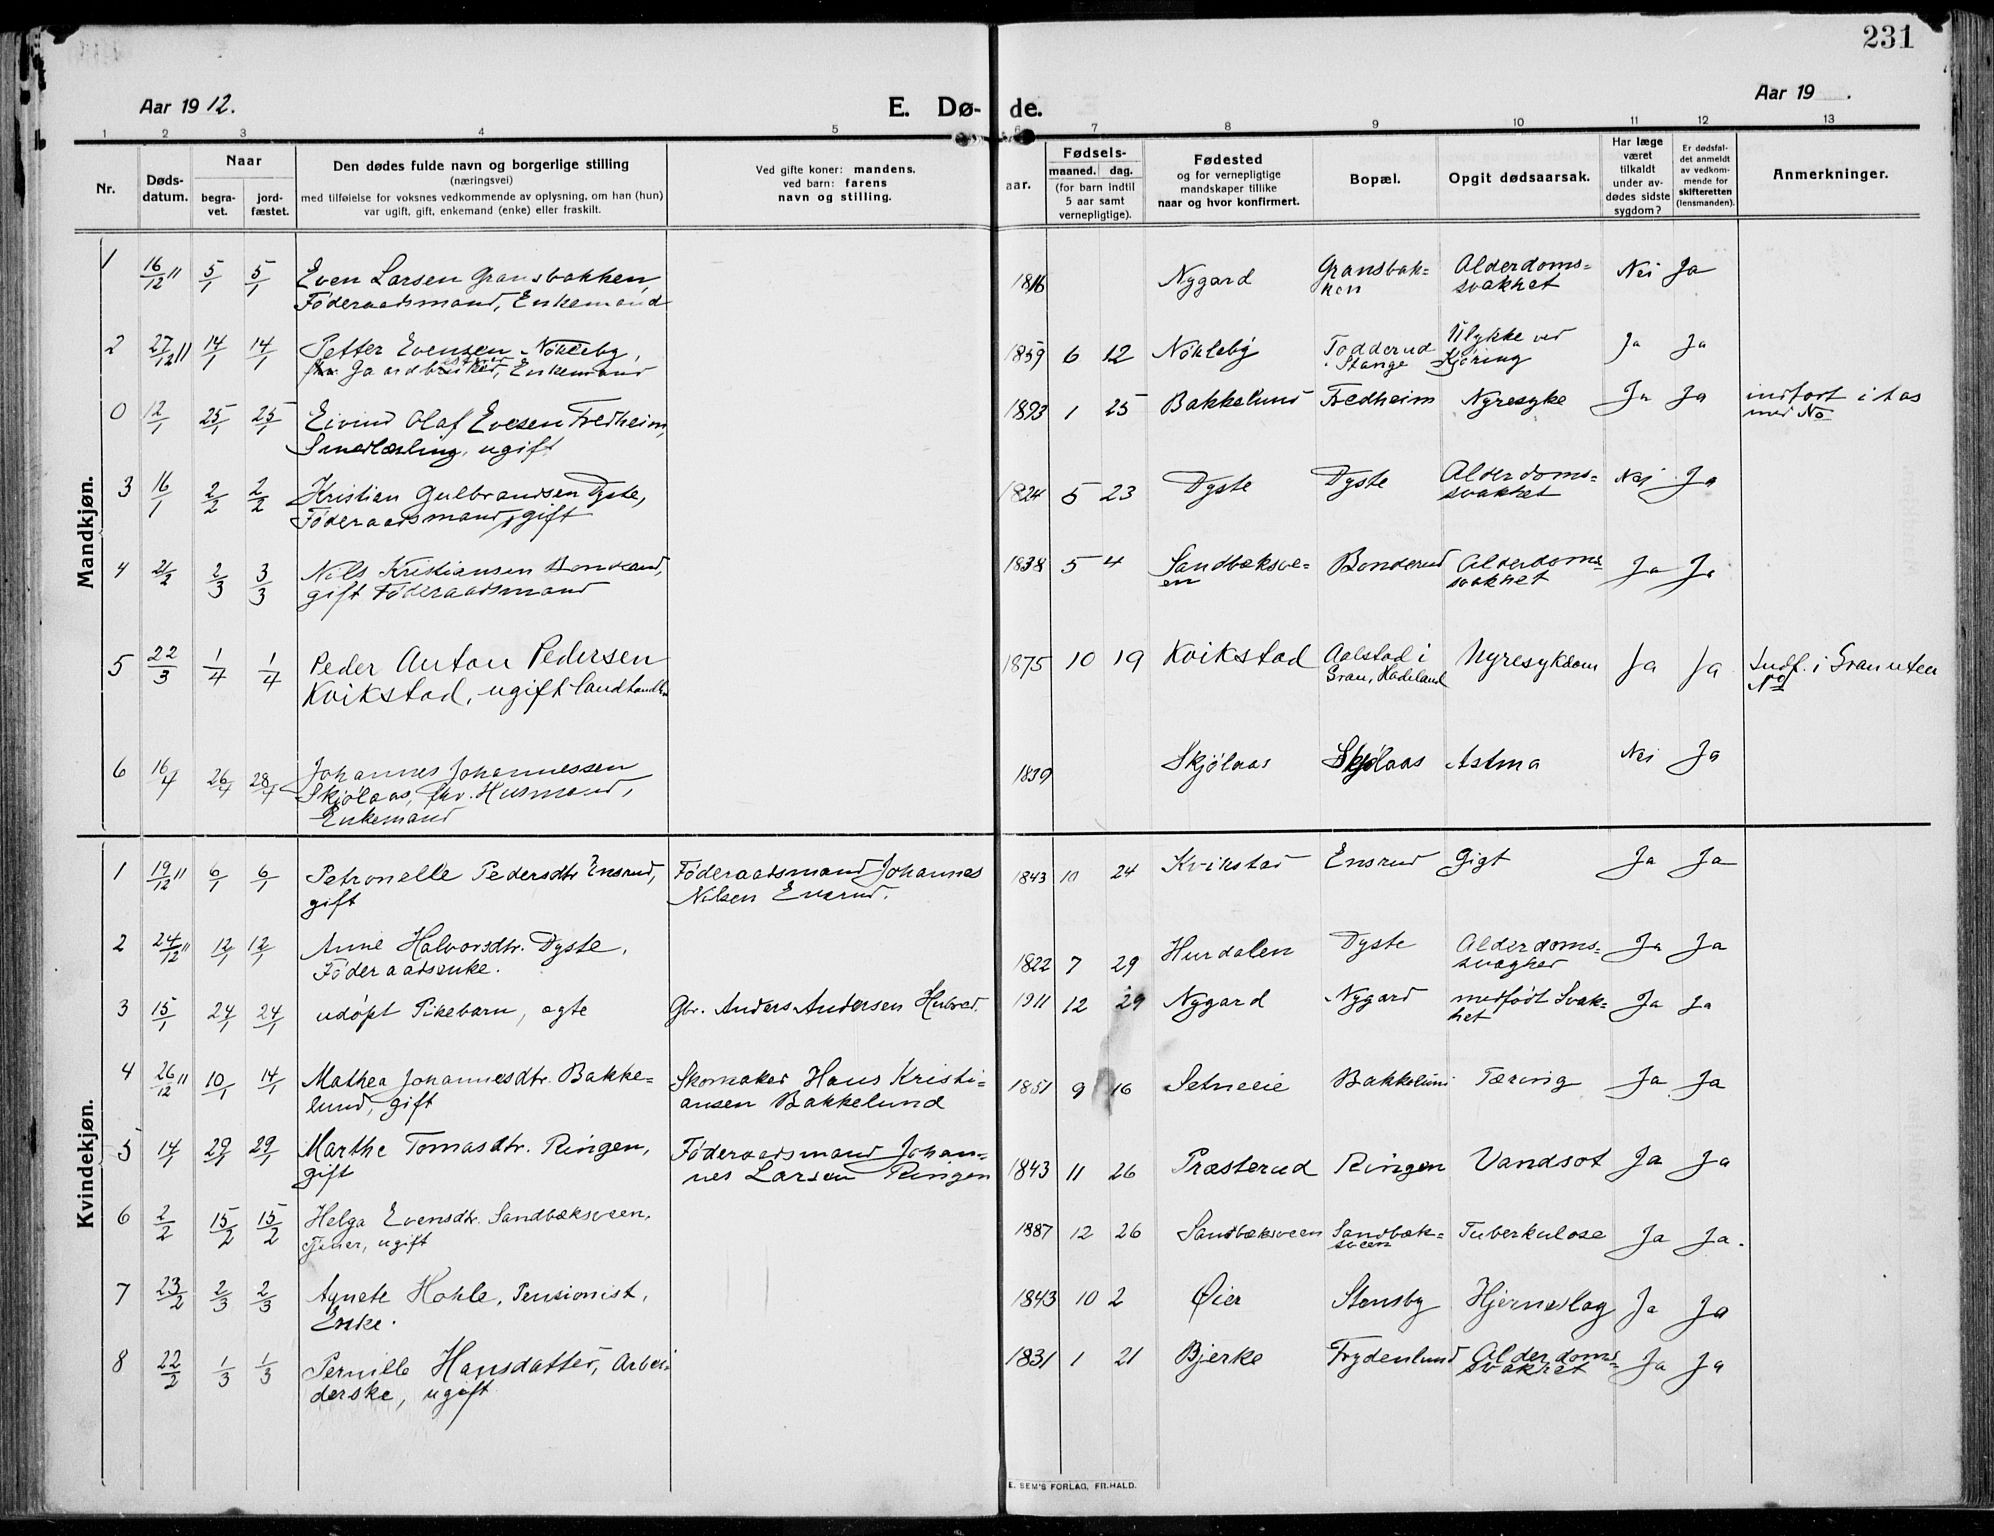 231
Aar 1912.
E. Dø- de.
Aar 19 .
1 2 3 4 5 6 7 8 9 10 11 12 13
Nr.
Døds-
datum.
Naar
begra-
vet.
jord-
fæstet.
Den dødes fulde navn og borgerlige stilling
(næringsvei)
med tilføielse for voksnes vedkommende av oplysning, om han (hun)
var ugift, gift, enkemand (enke) eller fraskilt.
Ved gifte koner: mandens.
ved barn: farens
navn og stilling.
aar.
Fødsels-
maaned. dag.
(for barn indtil
5 aar samt
vernepligtige).
Fødested
og for vernepligtige
mandskaper tillike
naar og hvor konfirmert.
Bopæl.
Opgit dødsaarsak.
Har læge
været
tilkaldt
under av-
dødes sidste
sygdom?
Er dødsfal-
det anmeldt
av vedkom-
mende for
skifteretten
(lensmanden).
Anmerkninger.
Mandkjøn.
1 16/12 11 5/1 5/1 Even Larsen Gransbakken, 1816 Nygard Gransbak= Alderdoms= Nei Ja
Föderaadsmand, Enkemand ken svakhet
2 27/12 11 14/1 14/1 Petter Evensen Nökleby, 1859 6 12 Nökleby Todderud Ulykke ved Ja Ja
Gaardbruker, Enkemand Stange Kjöring
0 12/1 25/1 25/1 Eivind Olaf Evesen Fredheim, 1893 1 25 Bakkelund Fredheim Nyresyke Ja Ja indfört i
Smedlærling, ugift med No
3 16/1 2/2 2/2 Kristian Gulbrandsen Dyste, 1824 5 23 Dyste Dyste Alderdoms= Nei Ja
Föderaadsmand, gift svakhet
4 21/2 2/3 3/3 Nils Kristiansen Bonderud, 1838 5 4 Sandbæksve= Bonderud Alderdoms= Ja Ja
gift Föderaadsmand en svakhet
5 22/3 1/4 1/4 Peder Anton Pedersen 1875 10 19 Kvikstad Aalstad i Nyresykdom Ja Ja Indf. i Gran uten
Kvikstad, ugift landhandler Gran, Hadeland No
6 16/4 26/4 28/4 Johannes Johannessen 1839 Skjölaas Skjölaas Astma Nei Ja
Skjölaas, fhv. Husmand,
Enkemand
Kvindekjøn.
1 19/12 11 6/1 6/1 Petronelle Pedersdtr Ensrud, Föderaadsmand Johannes 1843 10 24 Kvikstad Ensrud Gigt Ja Ja
gift Nilsen Ensrud.
2 24/12 11 12/1 12/1 Anne Halvorsdtr. Dyste, 1822 7 29 Hurdalen Dyste Alderdoms= Ja Ja
Föderaadsenke. svaghed
3 15/1 24/1 24/1 udöpt Pikebarn, ægte Gbr. Anders Andersen Hulver. 1911 12 29 Nygard Nygard medfödt Svak- Ja Ja
het
4 26/12 11 10/1 14/1 Mathea Johannesdtr. Bakke= Skomaker Hans Kristi- 1851 9 16 Setneeie Bakkelund Tæring Ja Ja
lund, gift ansen Bakkelund
5 14/1 29/1 29/1 Marthe Tomasdtr. Ringen, Föderaadsmand Johan- 1843 11 26 Præsterud Ringen Vandsot Ja Ja
gift nes Larsen Ringen
6 2/2 15/2 15/2 Helga Evensdtr. Sandbæksveen, 1887 12 26 Sandbæksveen Sandbæk= Tuberkulose Ja Ja.
Tjener, ugift sveen
7 23/2 2/3 2/3 Agnete Hohle, Pensionist, 1843 10 2 Øier Stensby Hjerneslag Ja Ja
Enke.
8 22/2 1/3 1/3 Pernille Hansdatter, Arbei= 1831 1 21 Bjerke Frydenlund Alderdoms= Ja Ja
derske, ugift svakhet
E. SEM'S FORLAG, FR.HALD.